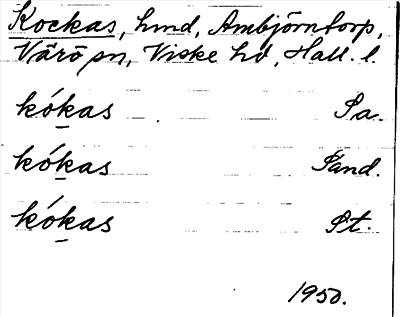 Kockas, hmd, Ambjörntorp,
Värö sn, Viske hd, Hall. l.
kókas Sa.
kókas Sand.
kókas St.
1950.